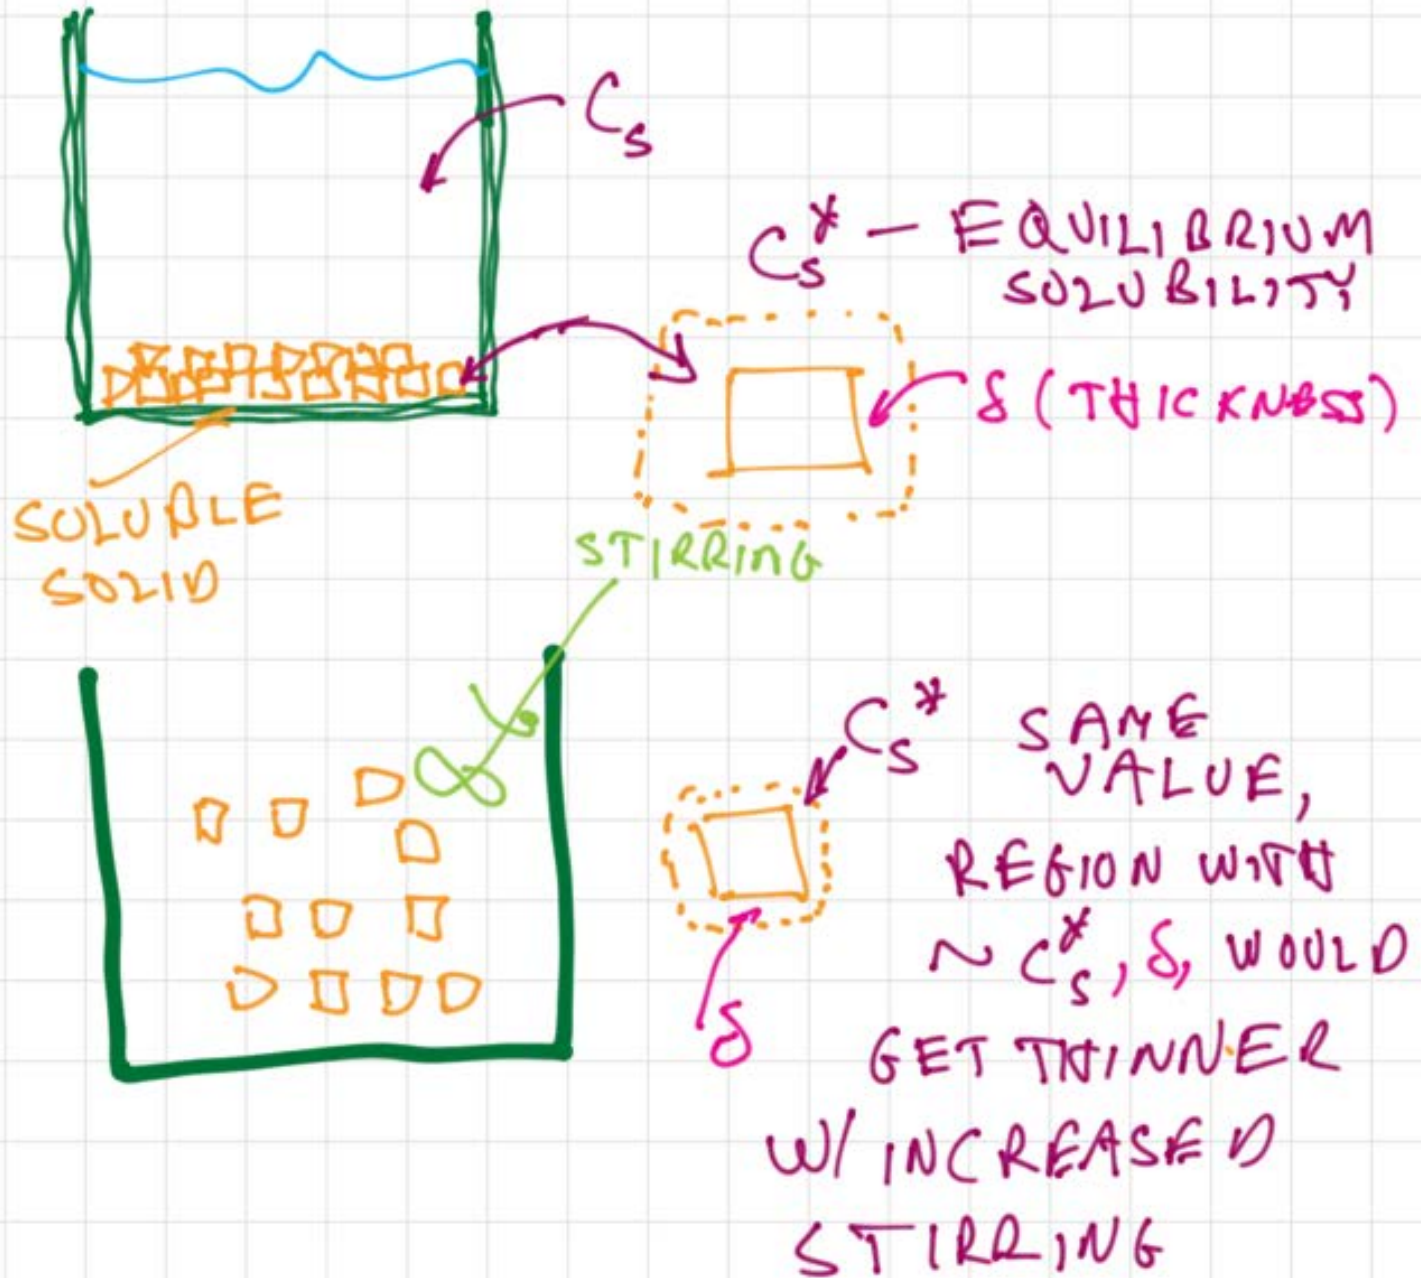 Cs
Cs* – EQUILIBRIUM
SOLUBILITY
δ (THICKNESS)
SOLUBLE
SOLID
STIRRING
Cs* SAME
VALUE,
REGION WITH
~ Cs*, δ, WOULD
GET THINNER
W/ INCREASED
STIRRING
δ